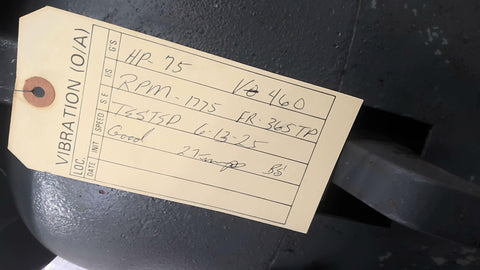 VIBRATION (O/A)
LOC. S.E. I/S G'S
DATE INIT SPEED
HP- 75 V 460
RPM- 1775 FR: 365TP
TESTSD 6-13-25
Good